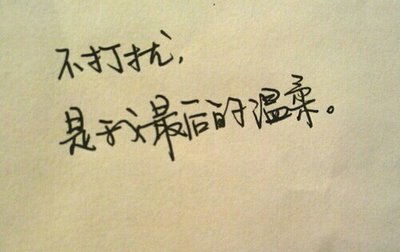 不打扰,
是我最后的温柔。